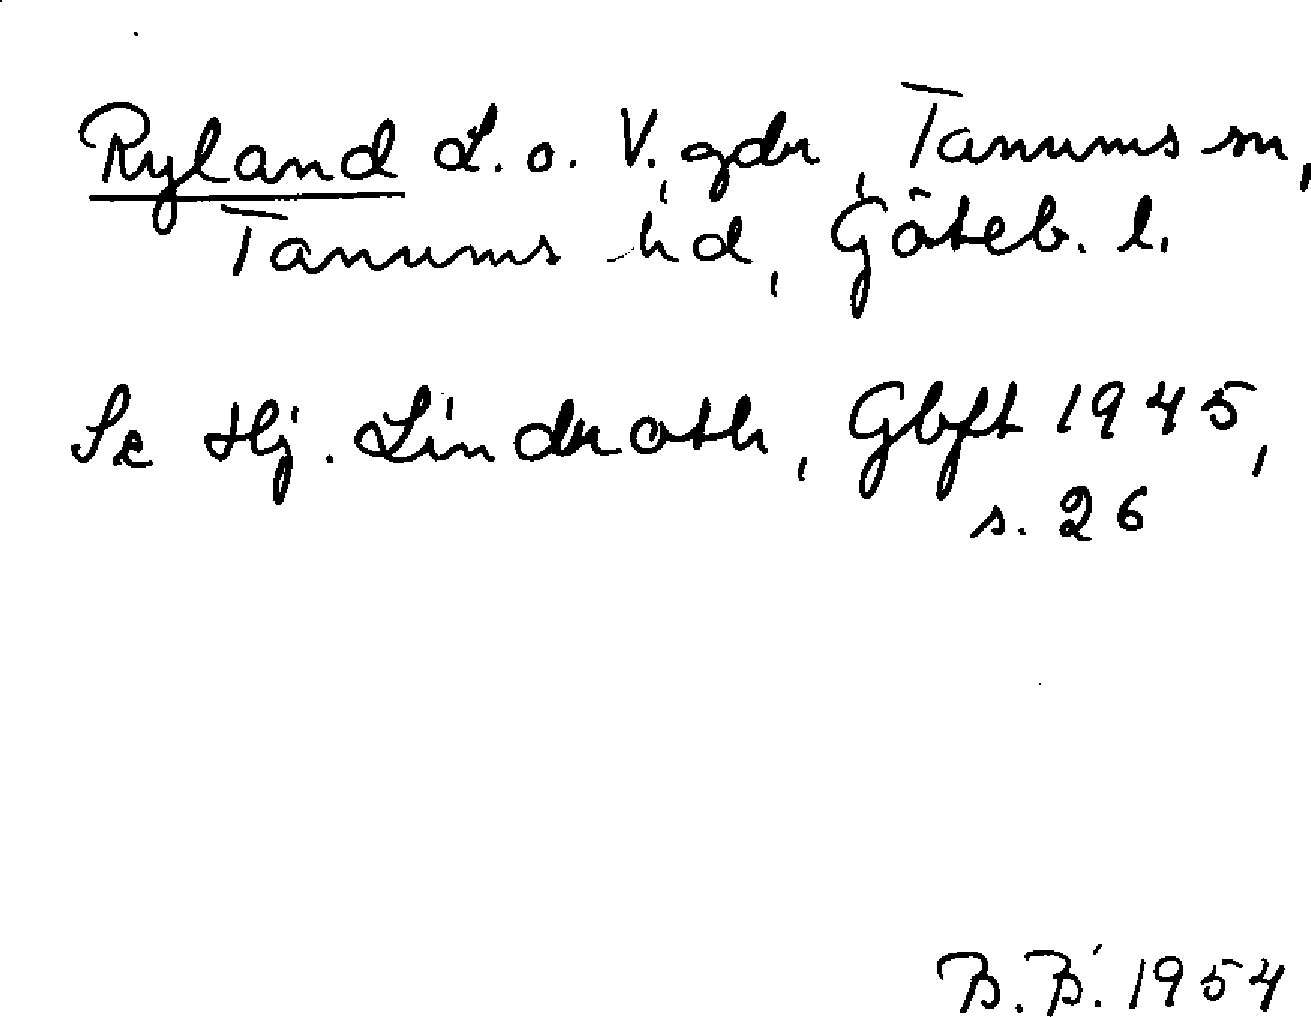 Ryland L. o. V., gdr, Tanums sn,
Tanums hd, Göteb. l.
Se Hj. Lindroth, Gbft 1945,
s. 26
B. B. 1954